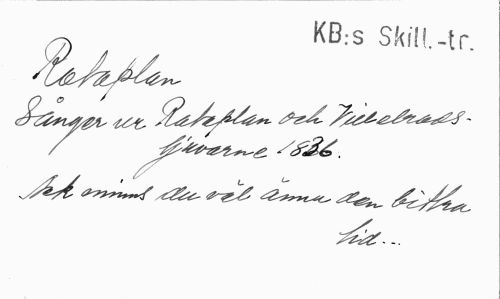 KB:s Skill.-tr.
Rataplan
Sånger ur Rataplan och Villebråds-
tjuvarne 1836.
Ack minns du väl ännu den bittra
tid...